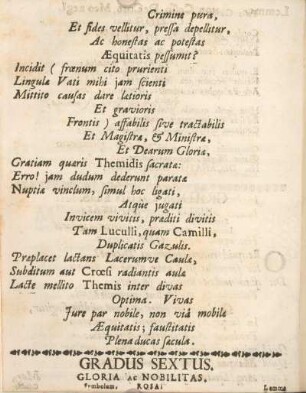 Crimine pura,
Et fides vellitur, pressa depellitur,
Ac honestas ac potestas
Æquitatis pessumit?
Incidit ( frænum cito prurienti
Lingulæ Vati mihi jam scienti
Mittito causas dare lætioris
Et gravioris
Frontis ) affabilis sive tractabilis
Et Magistra, & Ministra,
Et Dearum Gloria,
Gratiam quæris Themidis sacrata:
Erro! jam dudum dederunt paratæ
Nuptiæ vinclum, simul hoc ligati,
Atque jugati
Invicem vivitis, præditi divitis
Tam Luculli, quam Camilli,
Duplicatis Gazulis.
Præplacet lactans Lacerumve Caulæ,
Subditum aut Crœsi radiantis aulæ
Lacte mellito Themis inter divas
Optima. Vivas
Jure par nobile, non viâ mobile
Æquitatis; faustitatis
Plena ducas sæcula.
GRADUS SEXTUS.
GLORIA AC NOBILITAS,
Symbolum. ROSA:
Lemma